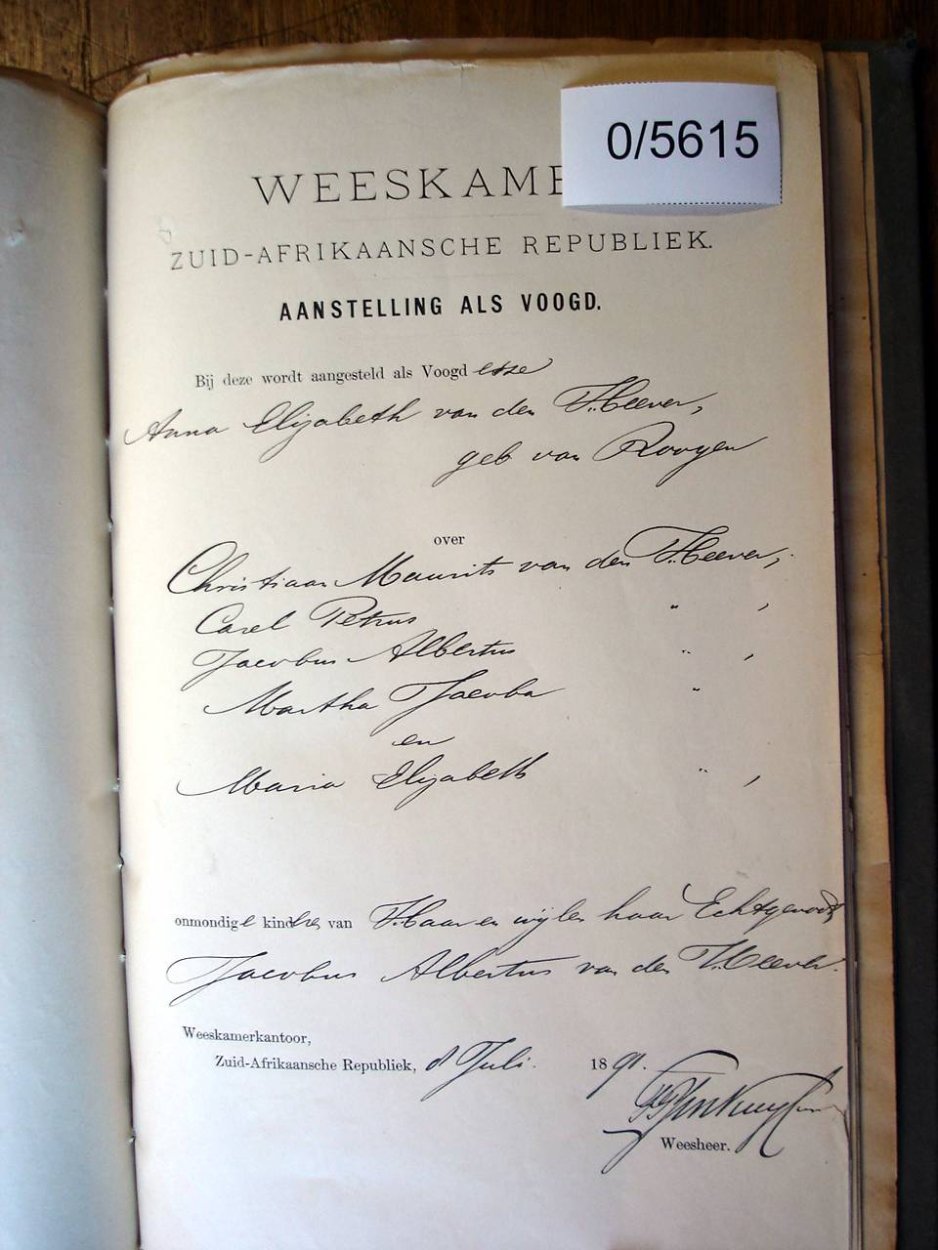 0/5615
WEESKAME
ZUID-AFRIKAANSCHE REPUBLIEK.
AANSTELLING ALS VOOGD.
Bij deze wordt aangesteld als Voogd esse
Anna Elizabeth van den Heever,
geb van Rooyen
over
Christiaan Maurits van den Heever,
Carel Petrus " ,
Jacobus Albertus " ,
Martha Jacoba "
en
Maria Elizabeth " ,
onmondige kindres van Haar en wijlen haar Echtgenoot
Jacobus Albertus van den Heever.
Weeskamerkantoor,
Zuid-Afrikaansche Republiek, Juli. 1891.
Weesheer.